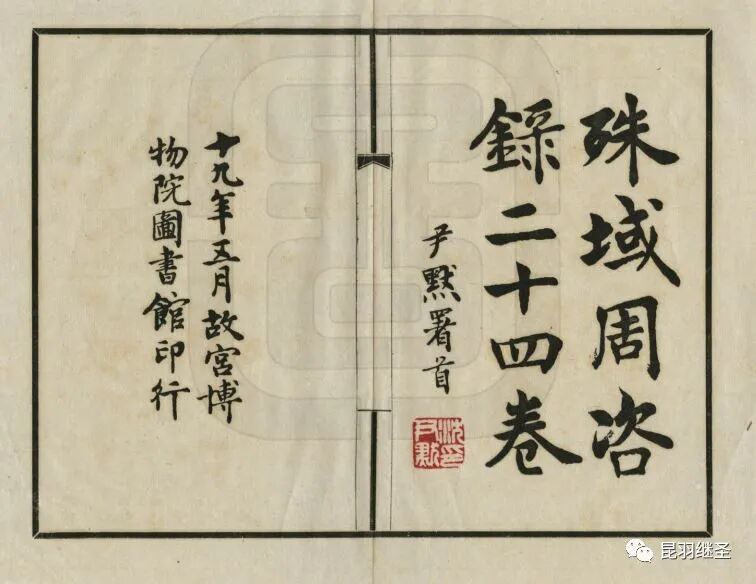 殊域周咨
錄二十四卷
尹默署首
沈印
尹默
十九年五月故宮博
物院圖書館印行
昆羽继圣